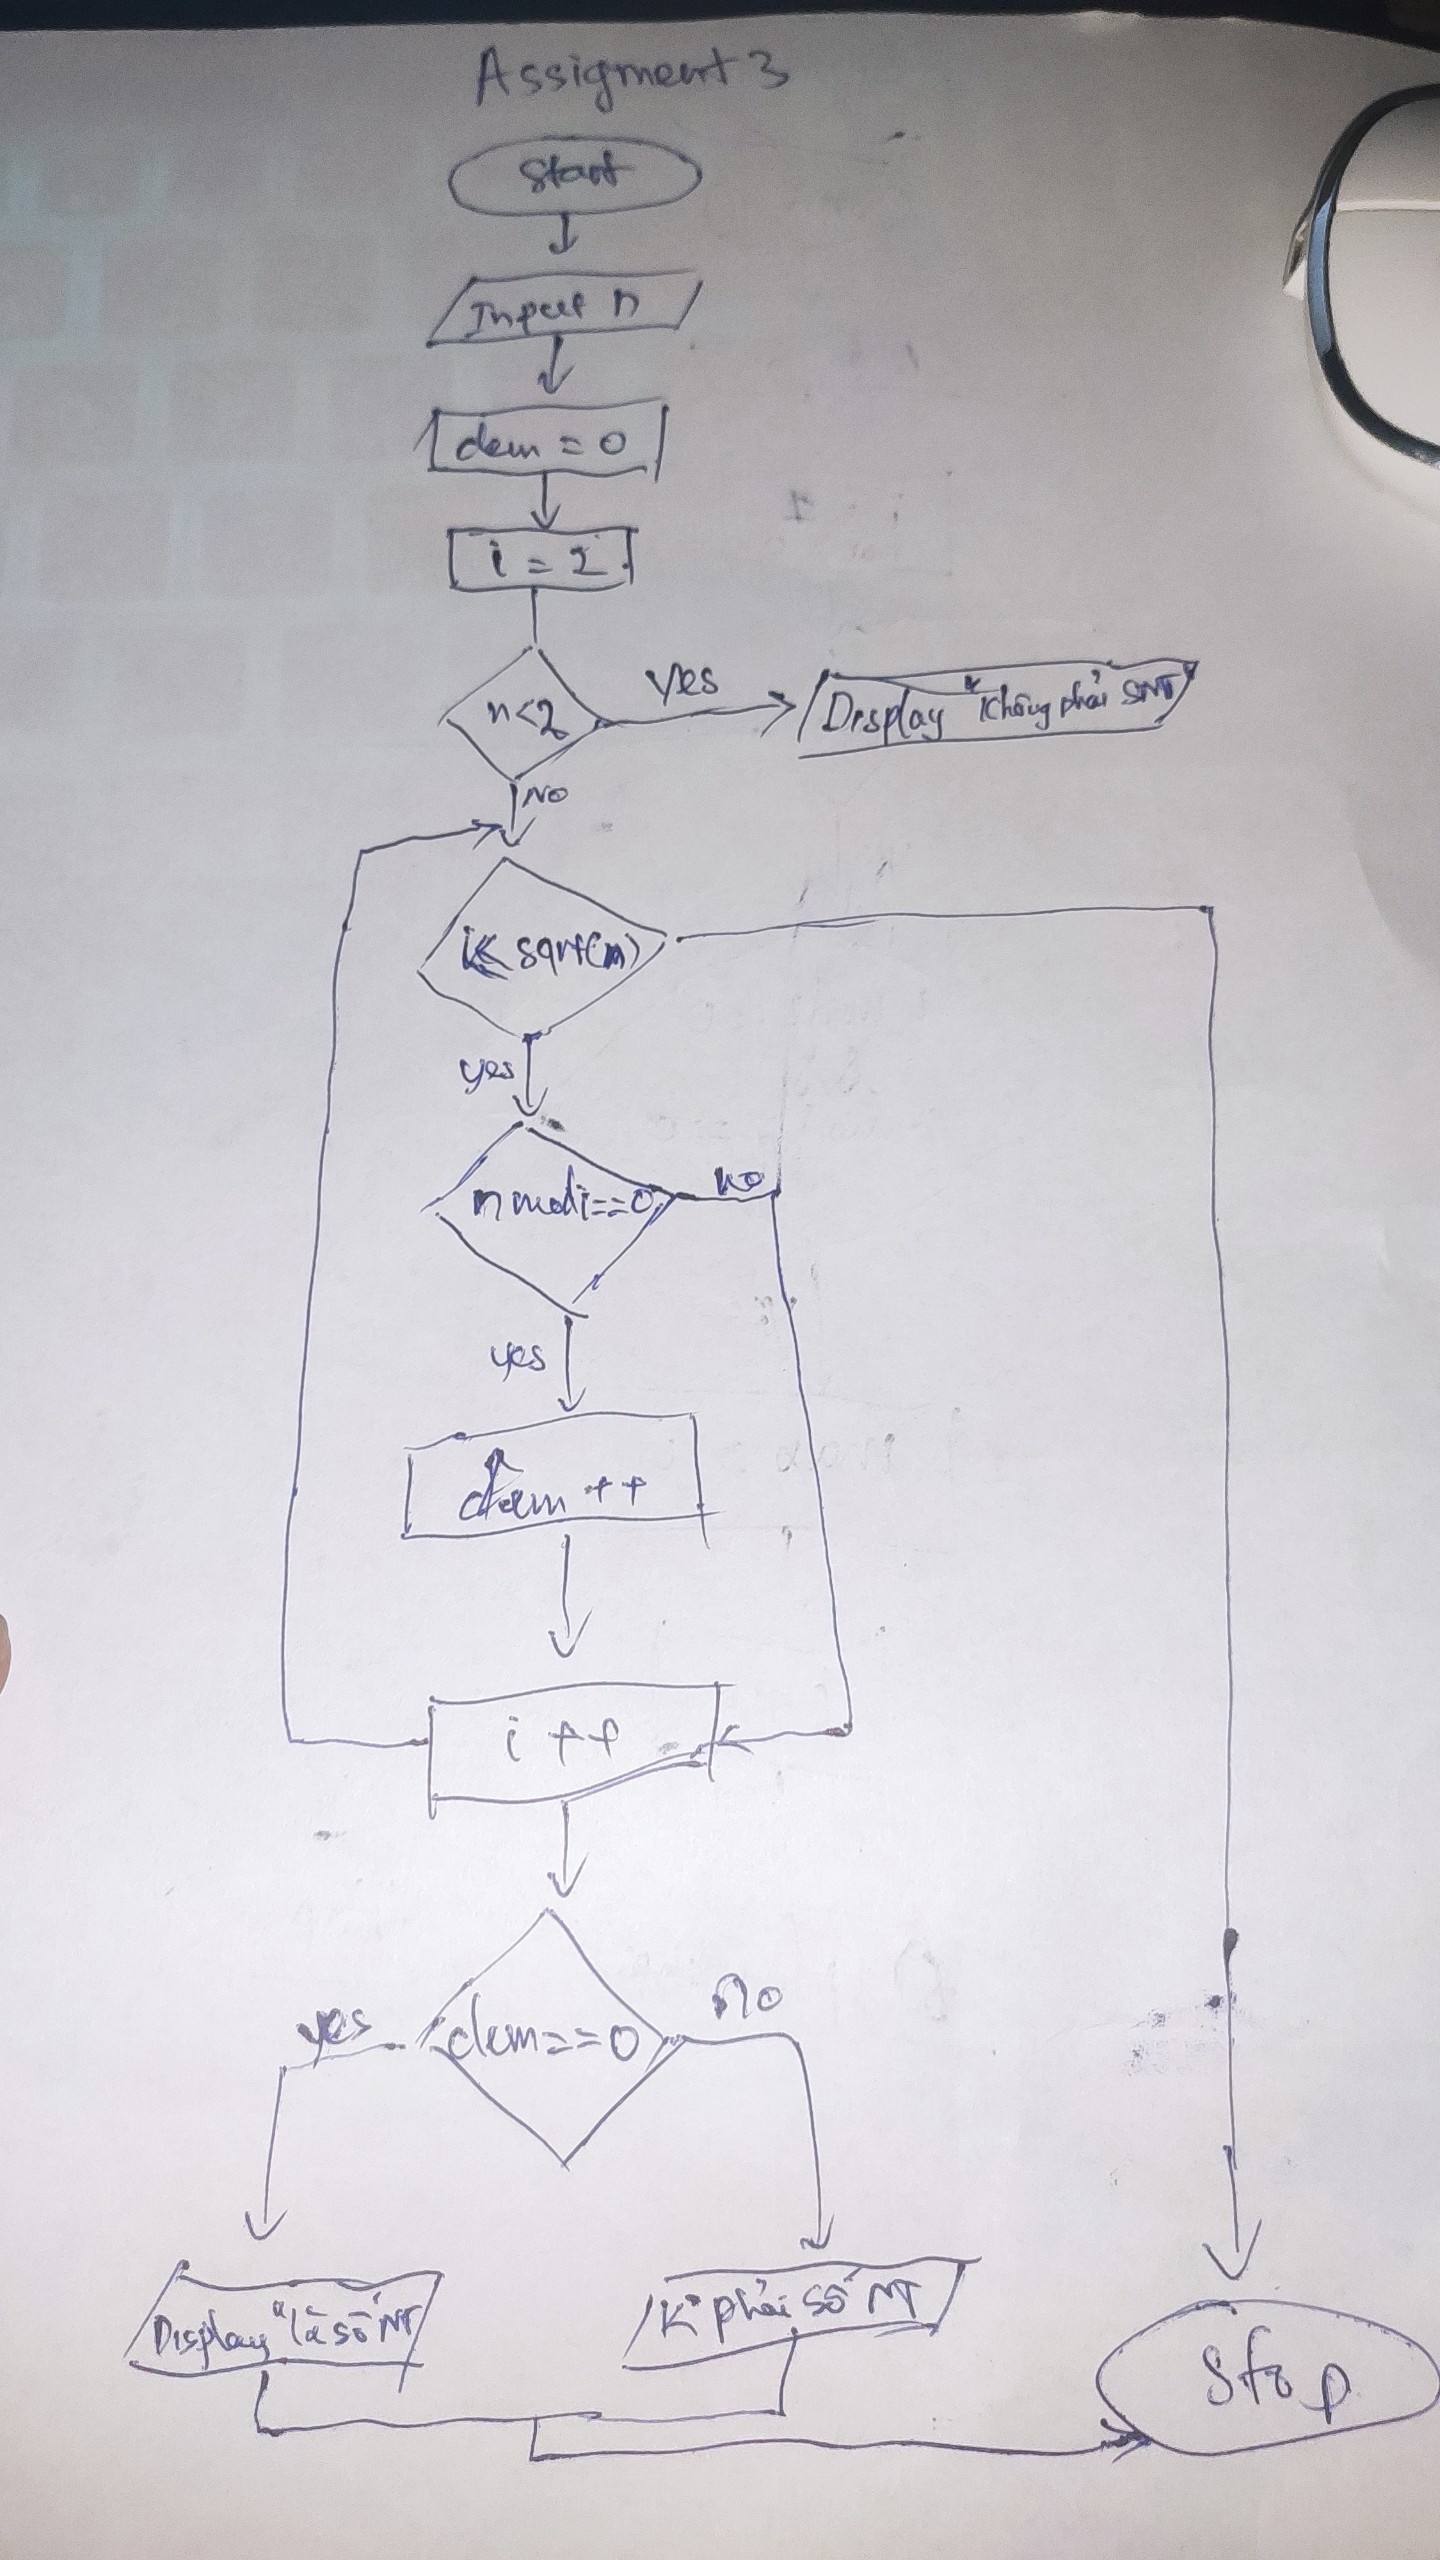 Assigment 3
Start
Input n
dem = 0
i = 2
n<2
yes
Display "Không phải SNT"
NO
i<= sqrt(n)
yes
n mod i==0
no
yes
dem ++
i ++
dem==0
yes
no
Display "là số NT"
K° phải số NT
Stop